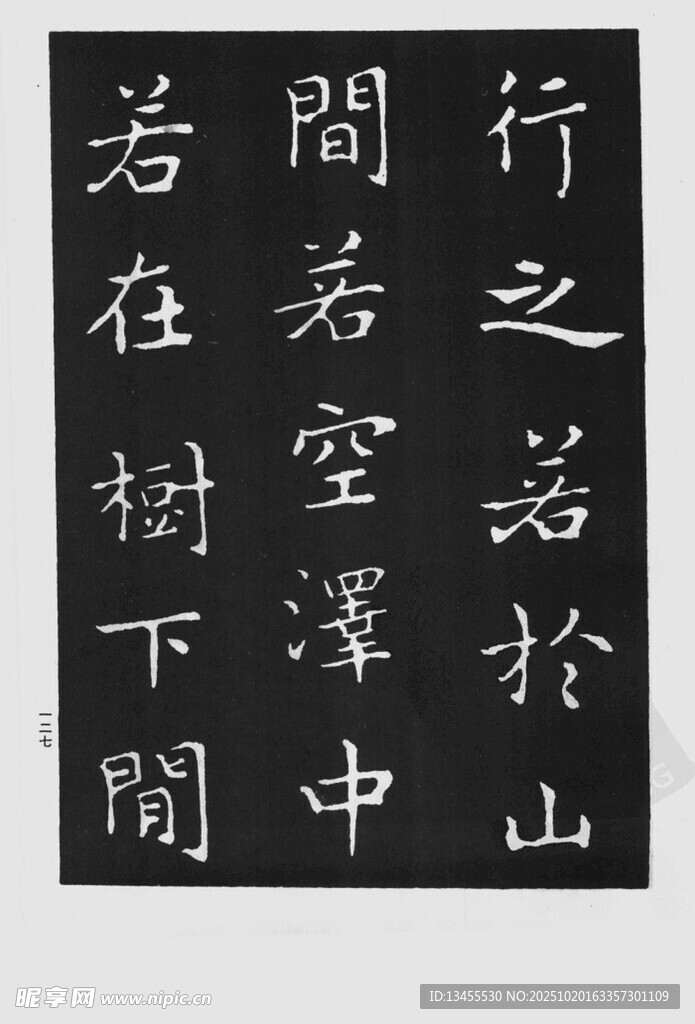 行之若於山
間若空澤中
若在樹下閒
一二七
昵享网 www.nipic.cn
ID:13455530 NO:20251020163357301109